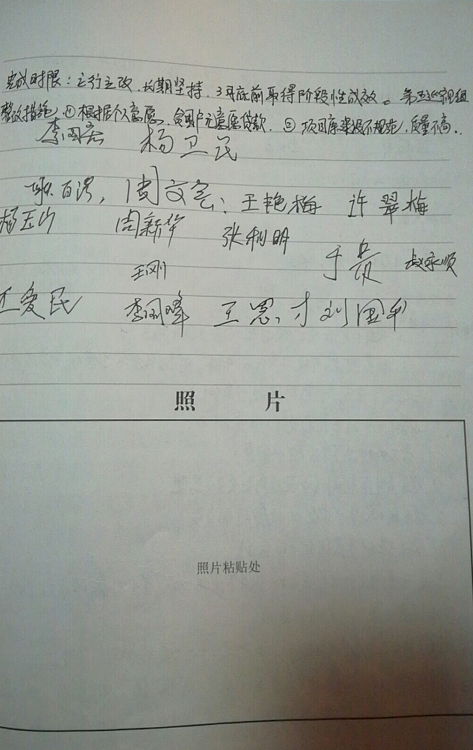 完成时限：立行立改，长期坚持，3月底前取得阶段性成效。第五巡视组
整改措施，①根据个人意愿，贫困户无意愿贷款，②项目库建设不规范，质量不高。
李国宏 杨卫民
周文宝；王艳梅 许翠梅
杨玉山 周新华 张利明
王刚 于贵 赵永顺
王爱民 李国峰 王恩才 刘国华
照 片
照片粘贴处